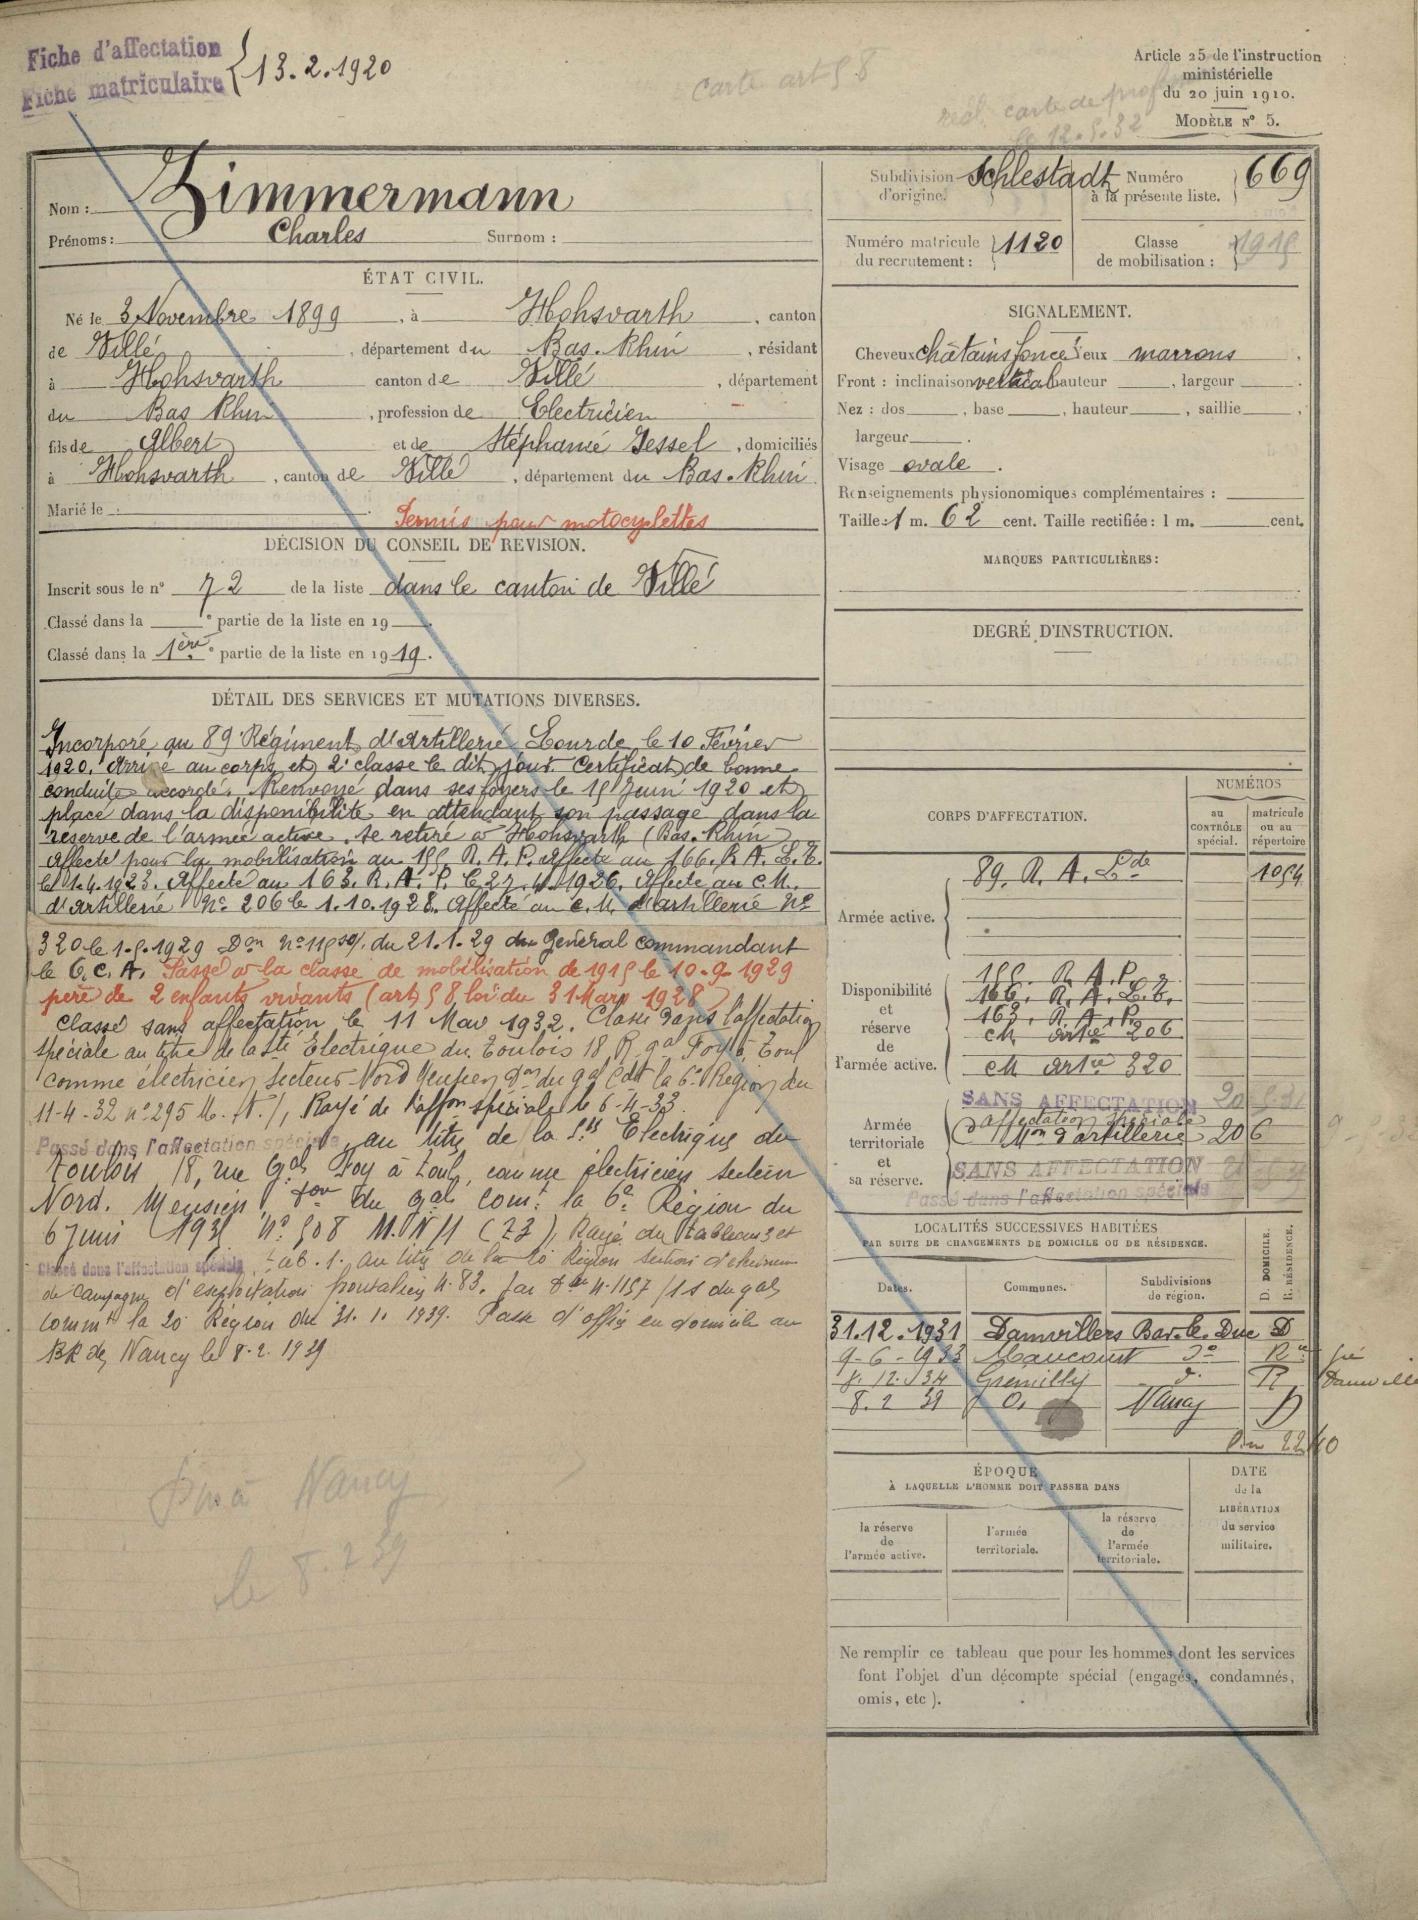 Fiche d'affectation
Fiche matriculaire
13.2.1920
carte art 58
carte de
le 12.5.32
Article 25 de l'instruction
ministérielle
du 20 juin 1910.
MODÈLE N° 5.
Nom : Zimmermann
Prénoms : Charles Surnom :
Subdivision d'origine. Schlestadt
Numéro à la présente liste. 669
Numéro matricule du recrutement : 1120
Classe de mobilisation : 1915
ÉTAT CIVIL.
Né le 3 Novembre 1899, à Hohswarth, canton
de Villé, département du Bas-Rhin, résidant
à Hohswarth canton de Villé, département
du Bas Rhin, profession de Electricien
fils de Albert et de Stéphanie Jessel, domiciliés
à Hohswarth, canton de Villé, département du Bas-Rhin.
Marié le :
Permis pour motocyclettes
DÉCISION DU CONSEIL DE REVISION.
Inscrit sous le n° 72 de la liste dans le canton de Villé
Classé dans la ° partie de la liste en 19 .
Classé dans la 1ère ° partie de la liste en 1919.
DÉTAIL DES SERVICES ET MUTATIONS DIVERSES.
Incorporé au 89 Régiment d'Artillerie Lourde le 10 Février
1920. Arrivé au corps et 2e classe le dit jour. Certificat de bonne
conduite accordé. Renvoyé dans ses foyers le 15 Juin 1920 et
placé dans la disponibilité en attendant son passage dans la
réserve de l'armée active. Se retire à Hohswarth (Bas.Rhin)
Affecté pour la mobilisation au 155 R.A.P. Affecté au 166. R.A.L.T.
le 1.4.1923. Affecté au 163. R.A.P. le 27.4.1926. Affecté au C.M.
d'Artillerie N° 206 le 1.10.1928. Affecté au C.M. d'artillerie N°
320 le 1-5-1929 Don N° 115 du 21.1.29 du Général commandant
le 6.C.A. Passé à la classe de mobilisation de 1915 le 10-9-1929
père de 2 enfants vivants (art 58 loi du 31 Mars 1928)
Classé sans affectation le 11 Mai 1932. Classé dans l'affectation
spéciale au titre de la Sté Electrique du Toulois 18 R. gal Foy à Toul
comme électricien secteur Nord Meusien Don du gal Cdt la 6e Région du
11-4-32 n° 295 M.N./, Rayé de l'affon spéciale le 6-4-33.
Passé dans l'affectation spéciale au titre de la Sté Electrique du
Toulois 18, rue Gal Foy à Toul, comme électricien secteur
Nord. Meusien Don du gal Comt la 6e Région du
6 Juin N° 508 M.N/1 (73), Rayé du tableau 3 et
Classé dans l'affectation spéciale tab. 1. au titre de la 20 Région section de chemin
de campagne d'exploitation 4.83. par 4.1157/1S du gal
Commt la 20 Région du 31.1.1939. Passé d'office en domicile au
BR de Nancy le 8.2.1939
Nancy
le 8.2.39
SIGNALEMENT.
Cheveux châtains foncé Yeux marrons
Front : inclinaison vertical hauteur , largeur .
Nez : dos , base , hauteur , saillie ,
largeur .
Visage ovale .
Renseignements physionomiques complémentaires :
Taille : 1 m. 62 cent. Taille rectifiée : 1 m. cent.
MARQUES PARTICULIÈRES :
DEGRÉ D'INSTRUCTION.
CORPS D'AFFECTATION.
NUMÉROS
au CONTRÔLE spécial.
matricule ou au répertoire
Armée active.
89. R. A. Lde 1054
Disponibilité et réserve de l'armée active.
155. R.A.P.
166. R.A.L.T.
163. R.A.P.
CM artie 206
CM artie 320
Armée territoriale et sa réserve.
SANS AFFECTATION
affectation spéciale
d'artillerie 206
SANS AFFECTATION
Passé dans l'affectation spéciale
LOCALITÉS SUCCESSIVES HABITÉES
PAR SUITE DE CHANGEMENTS DE DOMICILE OU DE RÉSIDENCE.
Dates. Communes. Subdivisions de région. D. DOMICILE. R. RÉSIDENCE.
31.12.1931 Damvillers Bar-le-Duc D
9-6-1933 Maucourt do R
8.12.34 Gremilly d. R
8.2 39 do Nancy D
ÉPOQUE
À LAQUELLE L'HOMME DOIT PASSER DANS
la réserve de l'armée active.
l'armée territoriale.
la réserve de l'armée territoriale.
DATE de la LIBÉRATION du service militaire.
Ne remplir ce tableau que pour les hommes dont les services
font l'objet d'un décompte spécial (engagés, condamnés,
omis, etc ).